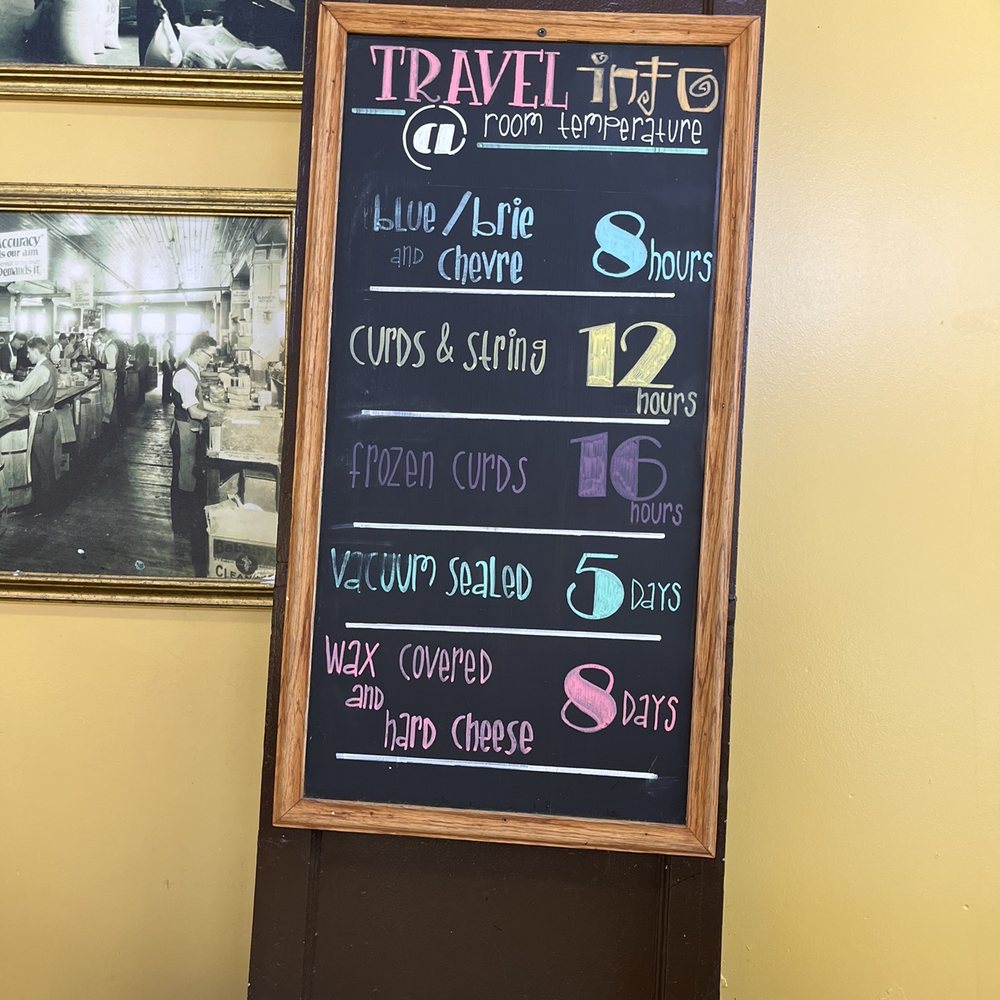 TRAVEL info
@ room temperature
blue/brie
and chevre
8 hours
curds & string
12
hours
frozen curds
16
hours
vacuum sealed
5 Days
wax covered
and
hard cheese
8 Days
Accuracy
is our aim
Demands it
CLEAN